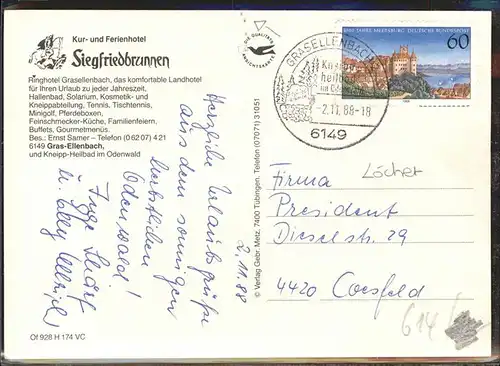 Kur- und Ferienhotel
Siegfriedbrunnen
Ringhotel Grasellenbach, das komfortable Landhotel
für Ihren Urlaub zu jeder Jahreszeit.
Hallenbad, Solarium, Kosmetik- und
Kneippabteilung, Tennis, Tischtennis,
Minigolf, Pferdeboxen,
Feinschmecker-Küche, Familienfeiern,
Buffets, Gourmetmenüs.
Bes.: Ernst Samer – Telefon (0 62 07) 4 21
6149 Gras-Ellenbach,
und Kneipp-Heilbad im Odenwald
Herzliche Urlaubsgrüße
aus dem sonnigen
herbstlichen
Odenwald!
Inge
u.
2.11.88
Of 928 H 174 VC
© Verlag Gebr. Metz, 7400 Tübingen, Telefon (07071) 31051
GRASELLENBACH
Kneipp
heilbad
im Odenwald
-2.11.88-18
6149
1000 JAHRE MEERSBURG DEUTSCHE BUNDESPOST
60
Löcher
Firma
President
Dieselstr. 29
4420 Coesfeld
614